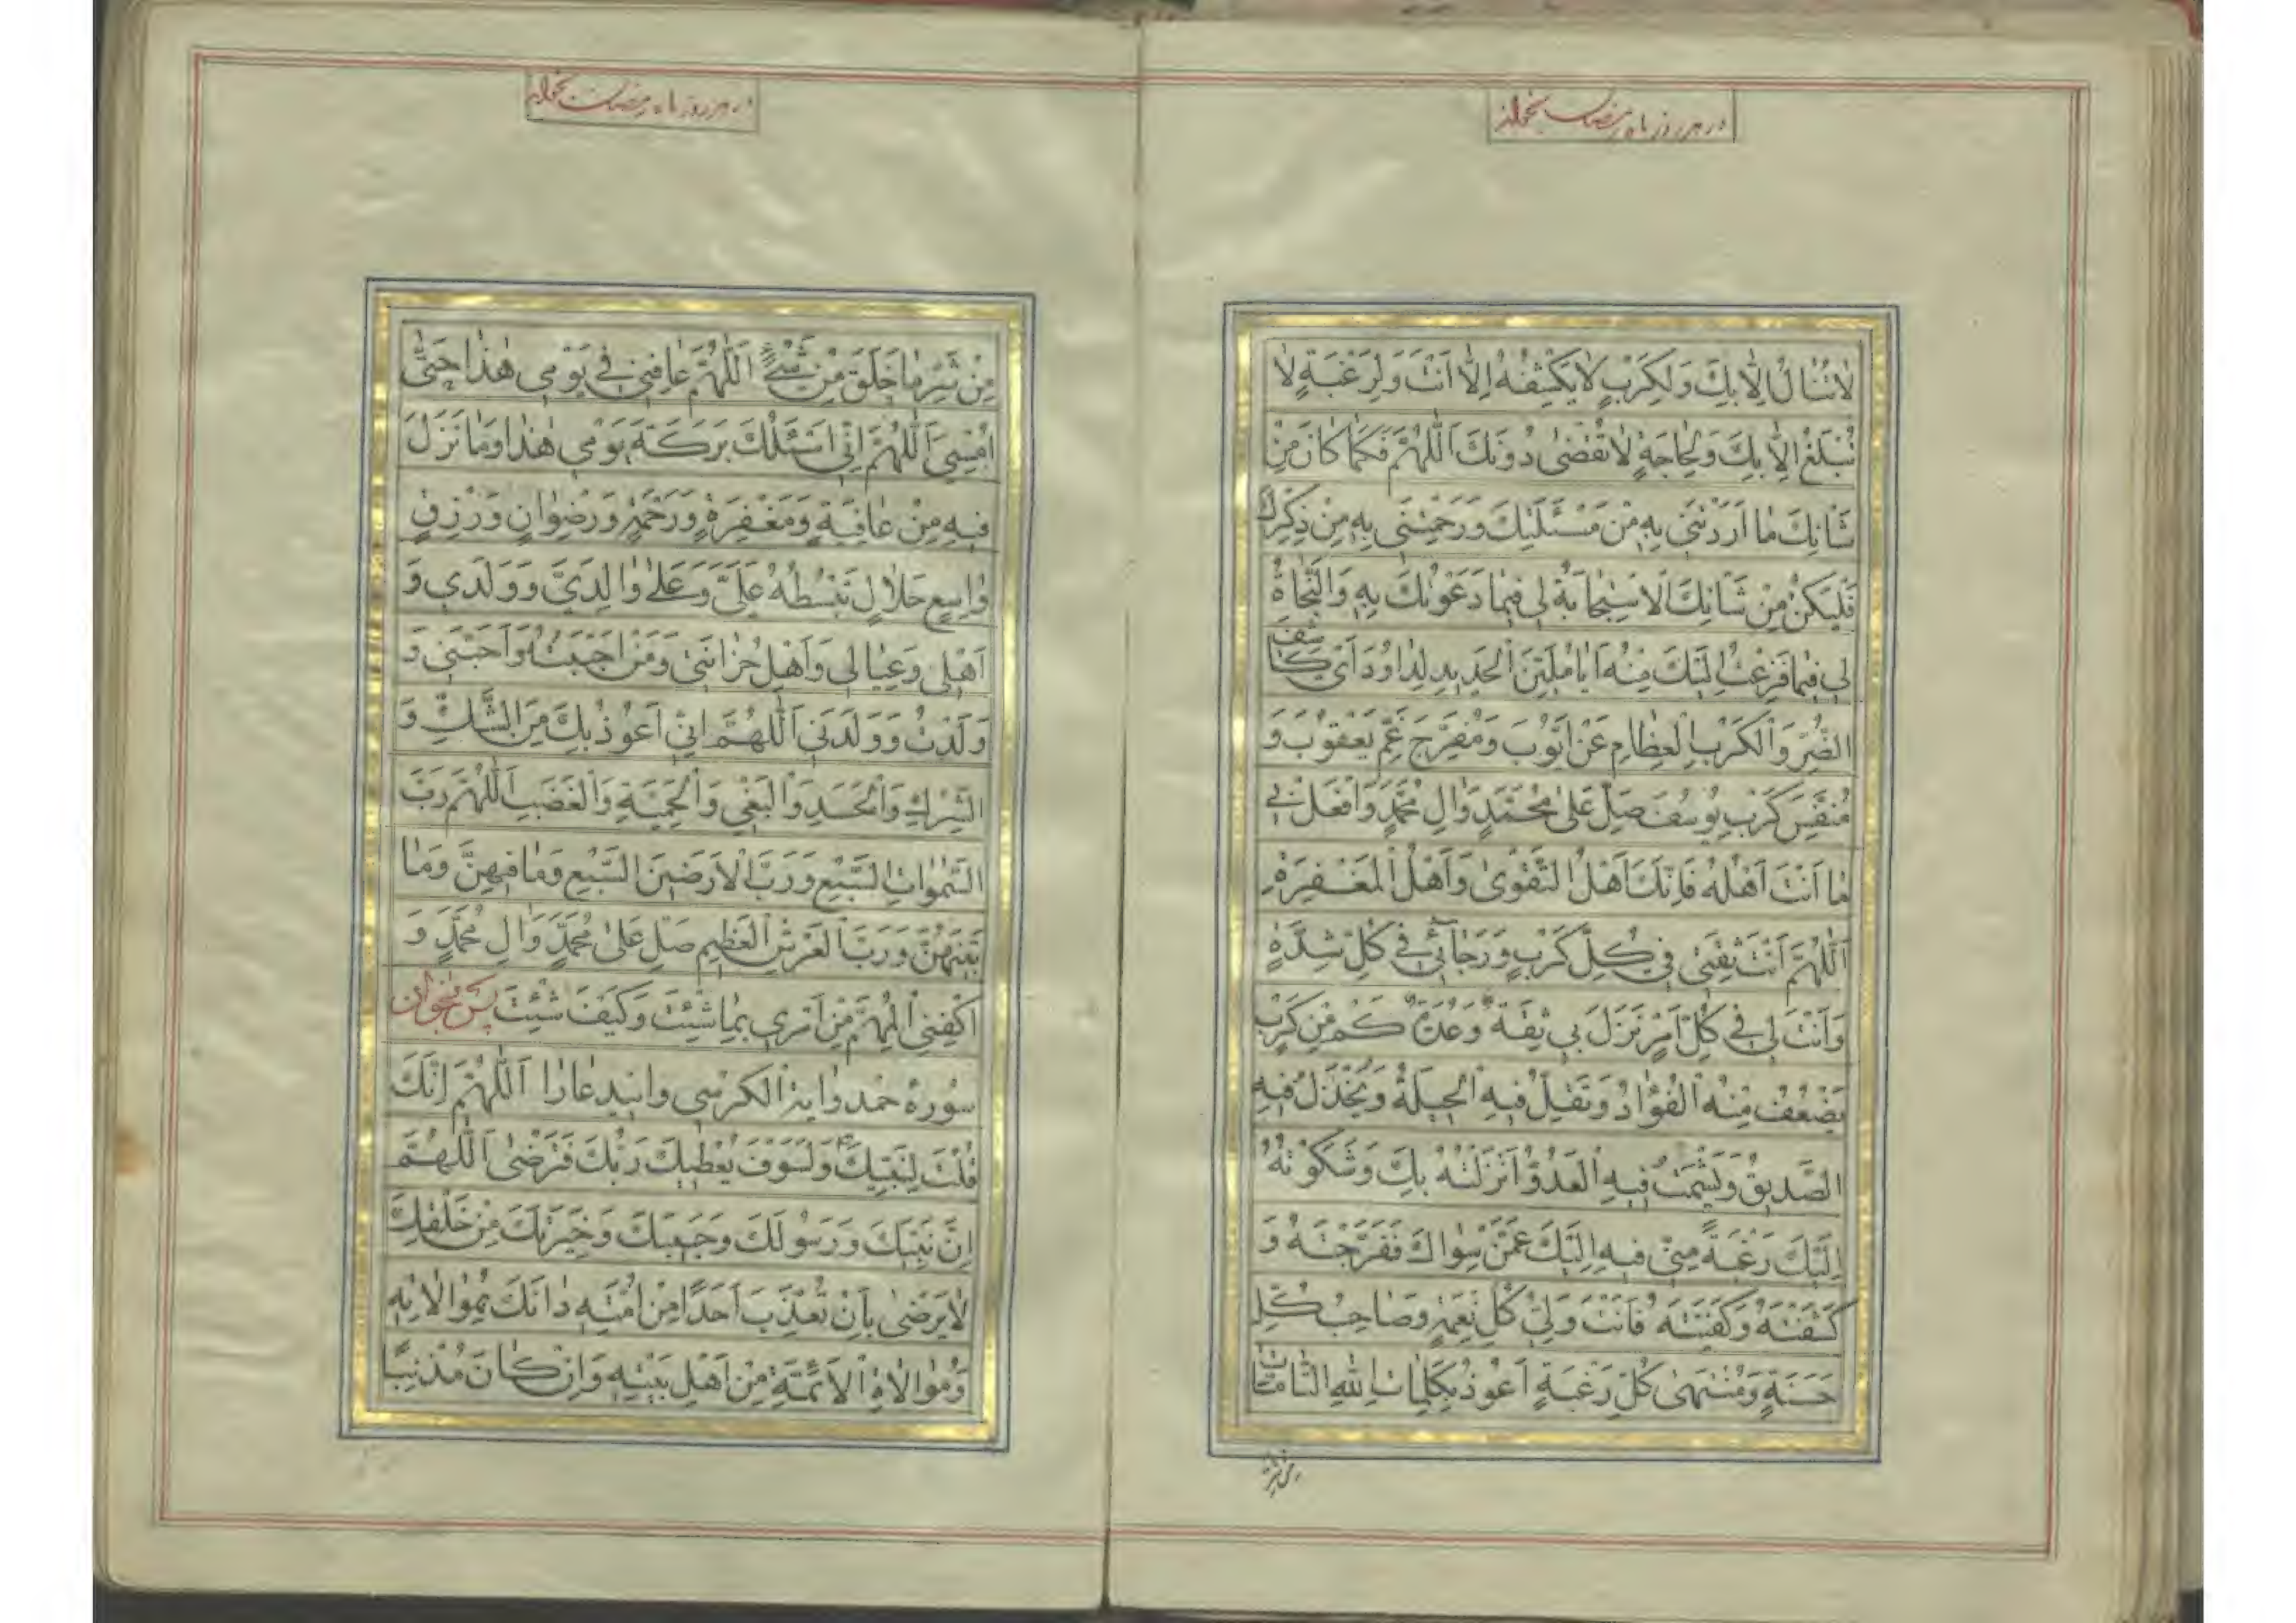 در هر روز ماه رمضان بخواند
لَا تُنَالُ اِلَّا بِكَ وَلِكَرْبٍ لَا يَكْشِفُهُ اِلَّا اَنْتَ وَلِرَغْبَةٍ لَا
تُبْلَغُ اِلَّا بِكَ وَلِحَاجَةٍ لَا تُقْضٰى دُونَكَ اَللّٰهُمَّ فَكَمَا كَانَ مِنْ
شَاْنِكَ مَا اَرَدْتَنِي بِهِ مِنْ مَسْئَلَتِكَ وَرَحِمْتَنِي بِهِ مِنْ ذِكْرِكَ
فَلْيَكُنْ مِنْ شَاْنِكَ الْاِسْتِجَابَةُ لِي فِيمَا دَعَوْتُكَ بِهِ وَالنَّجَاةُ
لِي فِيمَا فَزِعْتُ اِلَيْكَ مِنْهُ اَيَا مُلَيِّنَ الْحَدِيدِ لِدَاوُدَ اَيْ كَاشِفَ
الضُّرِّ وَالْكَرْبِ الْعِظَامِ عَنْ اَيُّوبَ وَمُفَرِّجَ غَمِّ يَعْقُوبَ وَ
مُنَفِّسَ كَرْبِ يُوسُفَ صَلِّ عَلٰى مُحَمَّدٍ وَاٰلِ مُحَمَّدٍ وَافْعَلْ بِي
مَا اَنْتَ اَهْلُهُ فَاِنَّكَ اَهْلُ التَّقْوٰى وَاَهْلُ الْمَغْفِرَةِ
اَللّٰهُمَّ اَنْتَ ثِقَتِي فِي كُلِّ كَرْبٍ وَرَجَائِي فِي كُلِّ شِدَّةٍ
وَاَنْتَ لِي فِي كُلِّ اَمْرٍ نَزَلَ بِي ثِقَةٌ وَعُدَّةٌ كَمْ مِنْ كَرْبٍ
يَضْعُفُ مِنْهُ الْفُؤَادُ وَتَقِلُّ فِيهِ الْحِيلَةُ وَيَخْذُلُ فِيهِ
الصَّدِيقُ وَيَشْمَتُ فِيهِ الْعَدُوُّ اَنْزَلْتُهُ بِكَ وَشَكَوْتُهُ
اِلَيْكَ رَغْبَةً مِنِّي فِيهِ اِلَيْكَ عَمَّنْ سِوَاكَ فَفَرَّجْتَهُ وَ
كَشَفْتَهُ وَكَفَيْتَهُ فَاَنْتَ وَلِيُّ كُلِّ نِعْمَةٍ وَصَاحِبُ كُلِّ
حَسَنَةٍ وَمُنْتَهٰى كُلِّ رَغْبَةٍ اَعُوذُ بِكَلِمَاتِ اللّٰهِ التَّامَّاتِ
من شر
در هر روز ماه رمضان بخواند
مِنْ شَرِّ مَا خَلَقَ مِنْ شَيْءٍ اَللّٰهُمَّ عَافِنِي فِي يَوْمِي هٰذَا حَتّٰى
اُمْسِيَ اَللّٰهُمَّ اِنِّي اَسْئَلُكَ بَرَكَةَ يَوْمِي هٰذَا وَمَا نَزَلَ
فِيهِ مِنْ عَافِيَةٍ وَمَغْفِرَةٍ وَرَحْمَةٍ وَرِضْوَانٍ وَرِزْقٍ
وَاسِعٍ حَلَالٍ تَبْسُطُهُ عَلَيَّ وَعَلٰى وَالِدَيَّ وَوَلَدِي وَ
اَهْلِي وَعِيَالِي وَاَهْلِ حُزَانَتِي وَمَنْ اَحْبَبْتُ وَاَحَبَّنِي وَ
وَلَدْتُ وَوَلَدَنِي اَللّٰهُمَّ اِنِّي اَعُوذُ بِكَ مِنَ الشَّكِّ وَ
الشِّرْكِ وَالْحَسَدِ وَالْبَغْيِ وَالْحَمِيَّةِ وَالْغَضَبِ اَللّٰهُمَّ رَبَّ
السَّمٰوَاتِ السَّبْعِ وَرَبَّ الْاَرَضِينَ السَّبْعِ وَمَا فِيهِنَّ وَمَا
بَيْنَهُنَّ وَرَبَّ الْعَرْشِ الْعَظِيمِ صَلِّ عَلٰى مُحَمَّدٍ وَاٰلِ مُحَمَّدٍ وَ
اكْفِنِي الْمُهِمَّ مِنْ اَمْرِي بِمَا شِئْتَ وَكَيْفَ شِئْتَ پس بخوان
سُورهٔ حمد واية الكرسى واين دعا را اَللّٰهُمَّ اِنَّكَ
قُلْتَ لِنَبِيِّكَ وَلَسَوْفَ يُعْطِيكَ رَبُّكَ فَتَرْضٰى اَللّٰهُمَّ
اِنَّ نَبِيَّكَ وَرَسُولَكَ وَحَبِيبَكَ وَخِيَرَتَكَ مِنْ خَلْقِكَ
لَا يَرْضٰى بِاَنْ تُعَذِّبَ اَحَدًا مِنْ اُمَّتِهِ دَانَكَ بِمُوَالَاتِهِ
وَمُوَالَاةِ الْاَئِمَّةِ مِنْ اَهْلِ بَيْتِهِ وَاِنْ كَانَ مُذْنِبًا